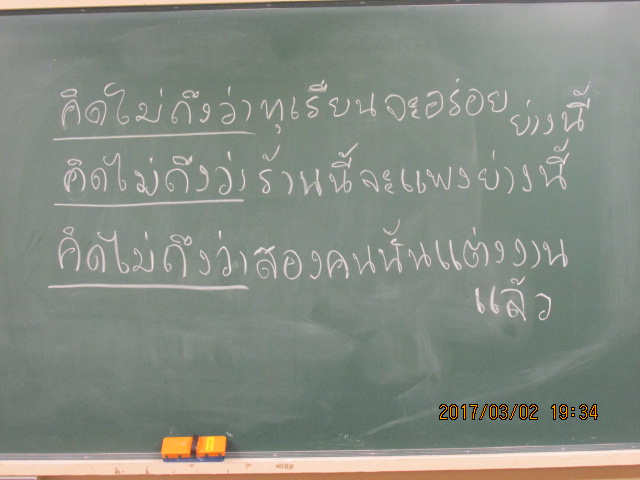 คิดไม่ถึงว่าทุเรียนจะอร่อยย่างนี้
คิดไม่ถึงว่าร้านนี้จะแพงย่างนี้
คิดไม่ถึงว่าสองคนนั้นแต่งงาน
แล้ว
2017/03/02 19:34